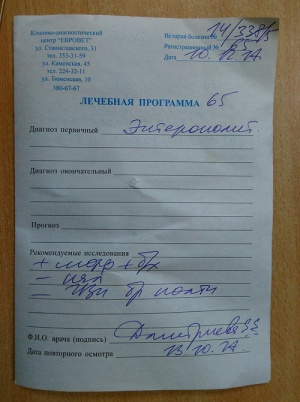 Клинико-диагностический
центр "ЕВРОВЕТ"
ул. Станиславского, 31
тел. 353-31-59
ул. Каменская, 45
тел. 224-32-11
ул. Тюменская, 10
380-67-67
История болезни № 14/338/5
Регистрационный № 65
Дата
ЛЕЧЕБНАЯ ПРОГРАММА 65
Диагноз первичный Энтероколит.
Диагноз окончательный
Прогноз
Рекомендуемые исследования
+ морф + б/х
УЗИ бр полти
Ф.И.О. врача (подпись) Дмитриева
Дата повторного осмотра 13 10. 14.